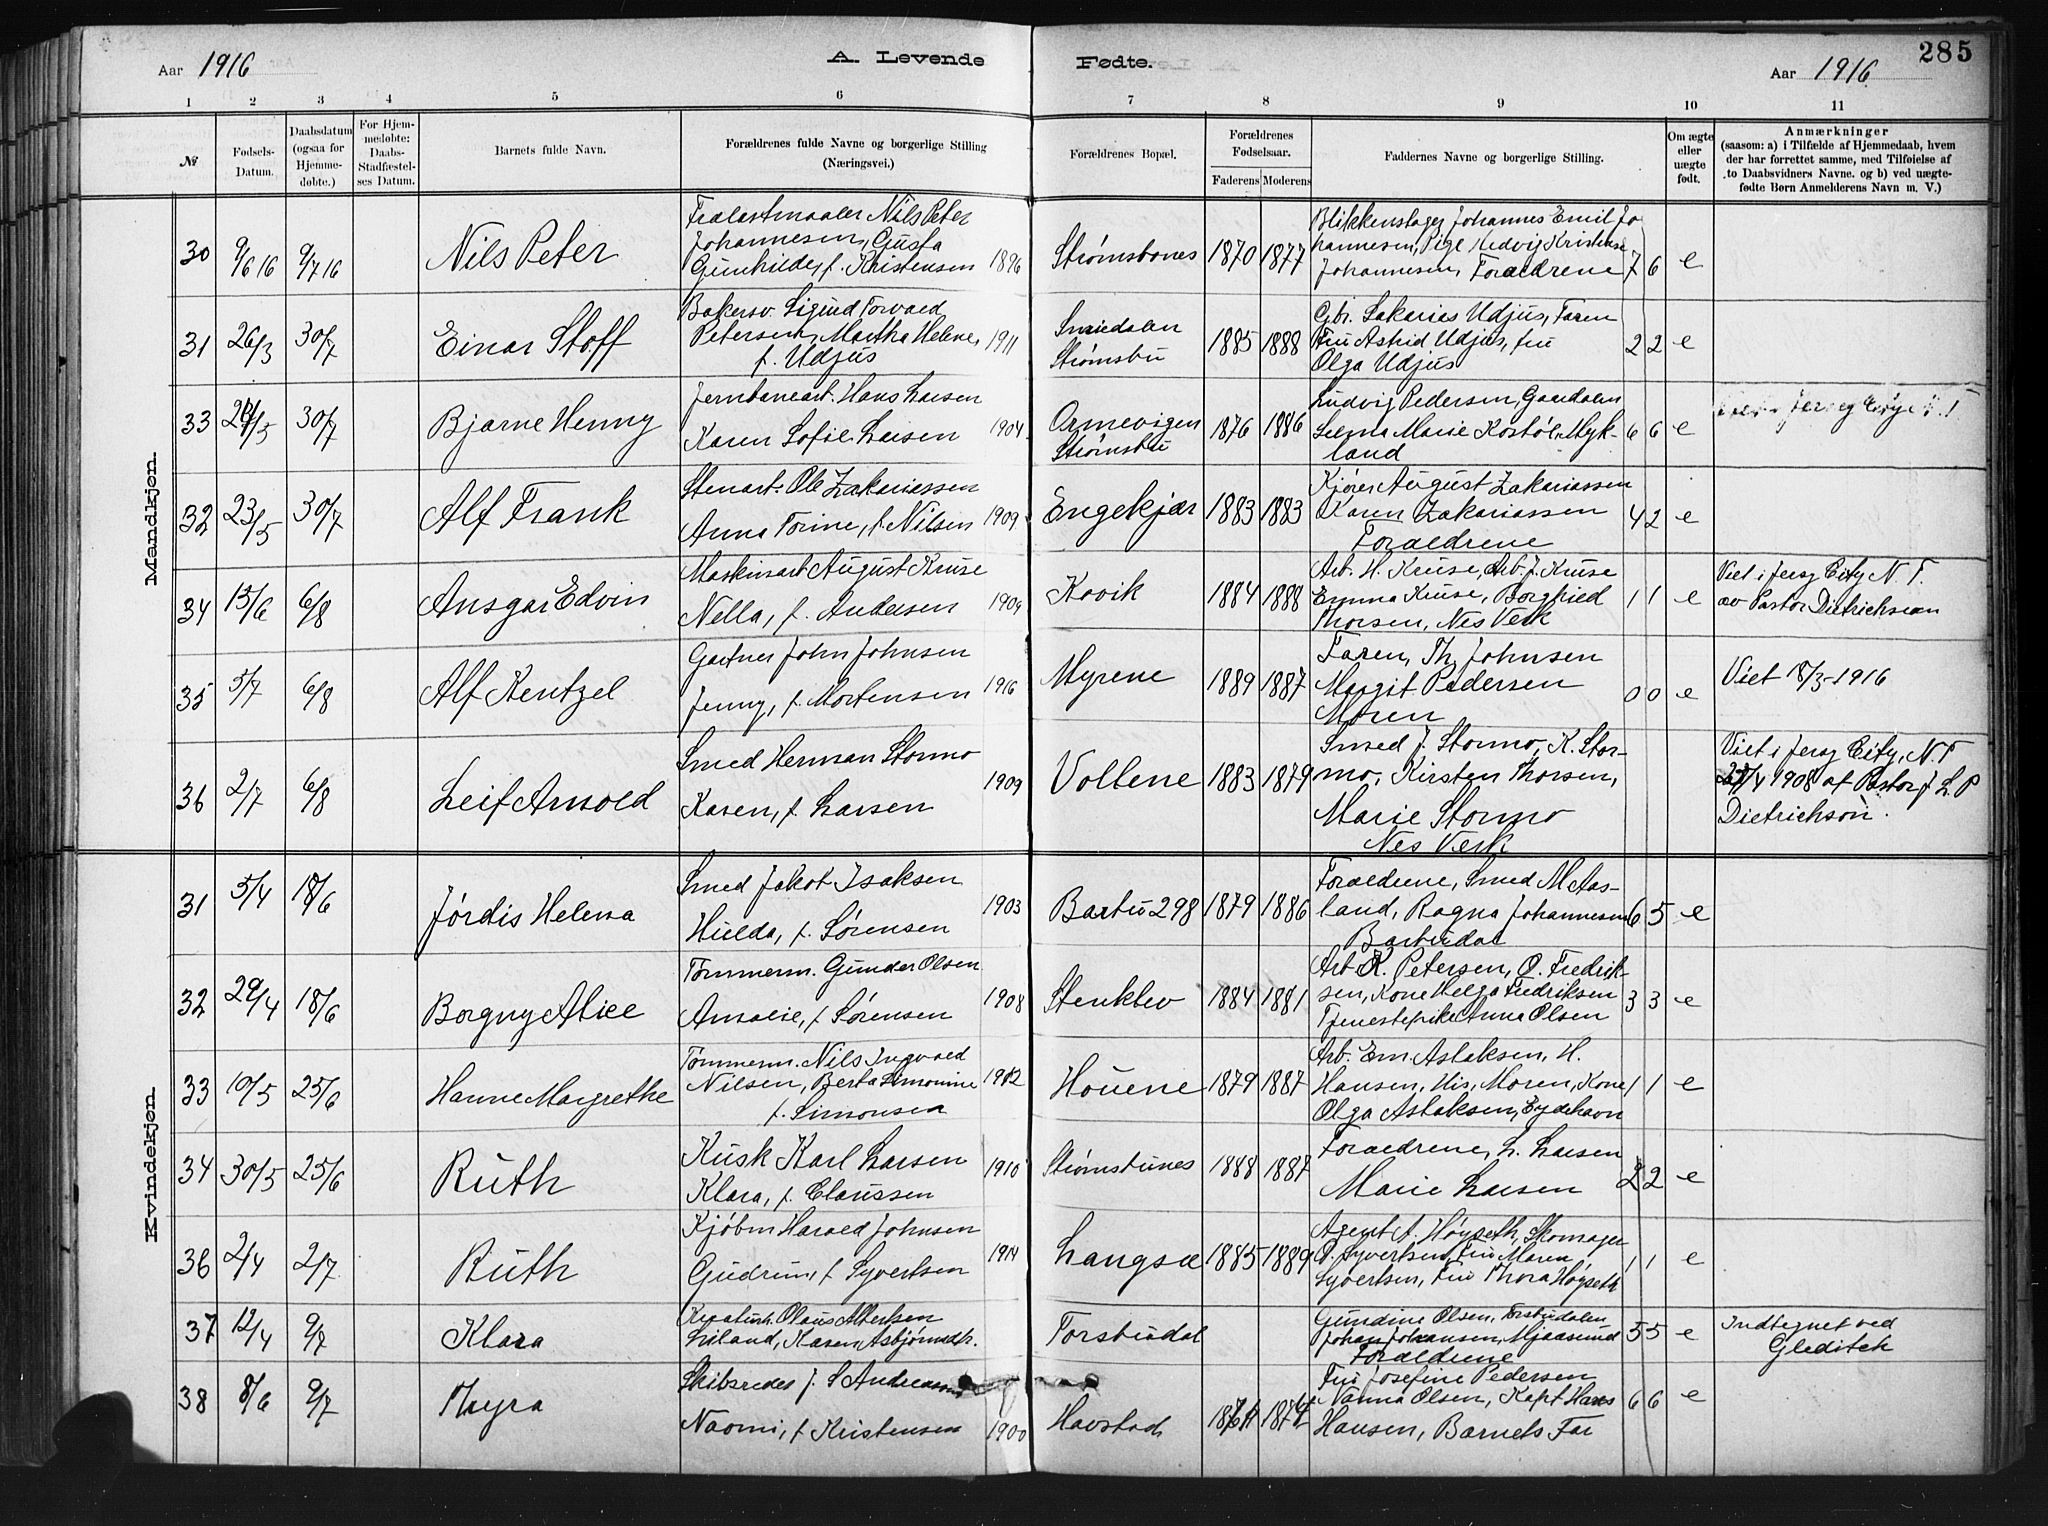 285
Aar 1916 A. Levende Fødte. Aar 1916
1 2 3 4 5 6 7 8 9 10 11
№
Fødsels-
Datum.
Daabsdatum
(ogsaa for
Hjemme-
døbte.)
For Hjem-
medøbte:
Daabs-
Stadfæstel-
ses Datum.
Barnets fulde Navn.
Forældrenes fulde Navne og borgerlige Stilling
(Næringsvei.)
Forældrenes Bopæl.
Forældrenes
Fødselsaar.
Faderens Moderens
Faddernes Navne og borgerlige Stilling.
Om ægte
eller
uægte
født.
Anmærkninger
(saasom: a) i Tilfælde af Hjemmedaab, hvem
der har forrettet samme, med Tilføielse af
to Daabsvidners Navne. og b) ved uægte-
fødte Børn Anmelderens Navn m. V.)
Mandkjøn.
30 9/6 16 9/7 16 Nils Peter
Nils Peter
Johannesen, Gusta
Gunhilde, f. Kristensen 1896
Strømsbones 1870 1877
Blikkenslager Johannes Emil Jo
hannesen, Pige Hedvig Kristine
Johannesen, Forældrene 7 6 e
31 26/3 30/7 Einar Stoff
Bakersv. Sigurd Torvald
Petersen, Martha Helene, 1911
f. Udjus
Smiedalen
Strømsbu
1885 1888
Gbr. Sakarias Udjus, Faren
Fru Astrid Udjus, fru
Olga Udjus 2 2 e
33 30/7 Bjarne Henny
Jernbanearb. Hans Larsen
Karen Sofie Larsen 1904
Ormevigen
Strømsbu
1876 1886
Ludvig Pedersen, Gaardalen
Selma Marie Kostøl, Myk-
land 6 6 e
32 23/5 30/7 Alf Frank
Stenarb. Ole Zakariassen
Anna Torine, f. Nilsen 1909
Engekjær 1883 1883
Kjører August Zakariassen
Karen Zakariassen
Forældrene 4 2 e
34 15/6 6/8 Ansgar Edvin
Maskinarb August Kruse
Nella, f. Andersen 1909
Kovik 1884 1888
Arb. H. Kruse, Arb. J. Kruse
Emma Kruse, Borghild
Thorsen, Nes Verk 1 1 e
Viet i Jersy City N. T.
av Pastor Dietrichson
35 5/7 6/8 Alf Kentzel
Gartner John Johnsen
Jenny, f. Mortensen 1916
Myrene 1889 1887
Faren, Th. Johnsen
Margit Pedersen
Moren 0 0 e
Viet 18/3-1916
36 2/7 6/8 Leif Arnold
Smed Herman Stormo
Karen, f. Larsen 1909
Vollene 1883 1879
Smed J. Stormo, K. Stor-
mo, Kirsten Thorsen,
Marie Stormo
Nes Verk
Viet i Jersy City, N. T
/4 1908 af Pastor J L. P
Dietrichson.
Kvindekjøn.
31 5/4 18/6 Jørdis Helena
Smed Jakob Isaksen
Hulda, f. Sørensen 1903
Barbu 298 1879 1886
Forældrene, Smed M Aas-
land, Ragna Johannesen
Barbudal 6 5 e
32 29/4 18/6 Borgny Alice
Tømmerm. Gunder Olsen
Amalie, f. Sørensen 1908
Stenklev 1884 1881
Arb. K. Petersen, O. Fredrik-
sen, Kone Helga Fredriksen
Tjenestepike Anna Olsen 3 3 e
33 10/5 25/6 Hanne Margrethe
Tømmerm. Nils Ingvald
Nilsen, Berta Simonine 1912
f. Simonsen
Houene 1879 1887
Arb. Em. Aslaksen, H.
Hansen, His, Moren, Kone
Olga Aslaksen, Eydehavn 1 1 e
34 30/5 25/6 Ruth
Kusk Karl Larsen
Klara, f. Claussen 1910
Strømsbunes 1888 1887
Forældrene, L. Larsen
Marie Larsen 2 2 e
36 2/4 2/7 Ruth
Kjøbm Harald Johnsen
Gudrun, f. Syvertsen 1914
Langsæ 1885 1889
Agent A. Høyseth, Skomager
P. Syvertsen, Fru Maren
Syvertsen, Fru Thora Høyseth 1 1 e
37 12/4 9/7 Klara
Olaus Albertsen
Liland, Karen Asbjørnsdtr.
Torsbudal
Gundine Olsen, Torsbudalen
Johan Johansen, Mjaasund
Forældrene 5 5 e
Indtegnet ved
Gleditsch
38 8/6 9/7 Thyra
Skibsreder J. S Andreasen
Naomi, f Kristensen 1900
Havstad 1874
Fru Josefine Pedersen
Nanna Olsen, Kapt Hans
Hansen, Barnets Far 6 6 e